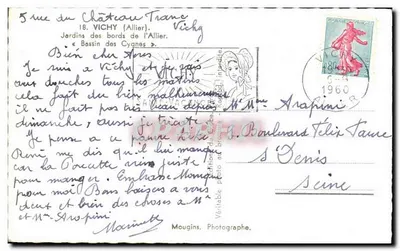 5 rue du Château Franc
Vichy
18. VICHY (Allier).
Jardins des bords de l'Allier.
« Bassin des Cygnes »
Bien cher
Je suis a Vichy et je vais
aux douches tous les matins
cela fait du bien malheureusement
il ne fait pas très beau depuis
dimanche, aussi je
Je pense a ce
René me dis qu'il lui manque
car la
pour manger. Embrasse Monique
pour moi Bons baisers a vous
deux et bien des choses a M
et Mme Arapini
VICHY
1960
M Mme Arapini
Boulevard Félix Faure
St Denis
Seine
Mougins, Photographe.